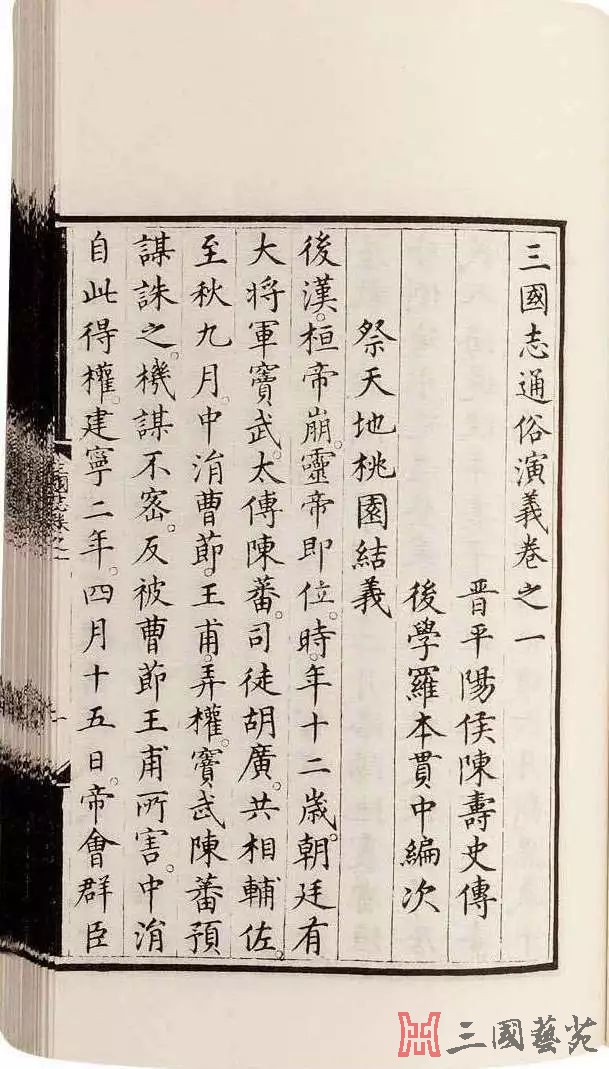 三國志通俗演義卷之一
晋平陽侯陳壽史傳
後學羅本貫中編次
祭天地桃園結義
後漢。桓帝崩。靈帝即位。時年十二歲。朝廷有
大將軍竇武。太傅陳蕃。司徒胡廣。共相輔佐。
至秋九月。中涓曹節。王甫。弄權。竇武陳蕃預
謀誅之。機謀不密。反被曹節王甫所害。中涓
自此得權。建寧二年。四月十五日。帝會群臣
三國藝苑